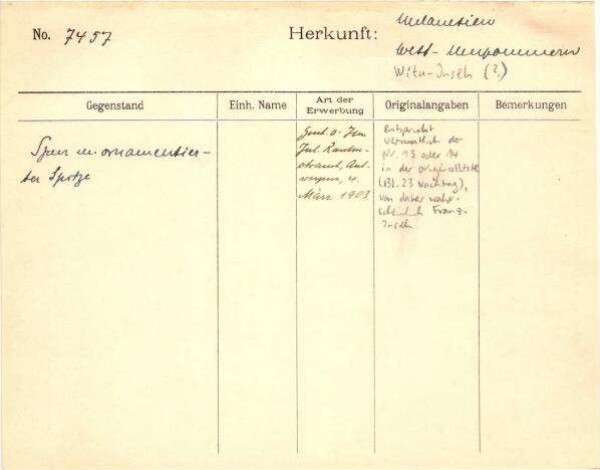 No. 7457
Herkunft:
Melanesien
West-Neupommern
Witu-Inseln (?)
Gegenstand
Einh. Name
Art der Erwerbung
Originalangaben
Bemerkungen
Speer m. ornamentier-
ter Spitze
Gesch. v. Hrn
Jul. Rauten-
strauch, Ant-
werpen, 4.
März 1903
Entspricht
vermutlich der
Nr. 13 oder 14
in der Originalliste
(Bl. 23 Nachtrag),
von daher wahr-
scheinlich Franz.
Inseln